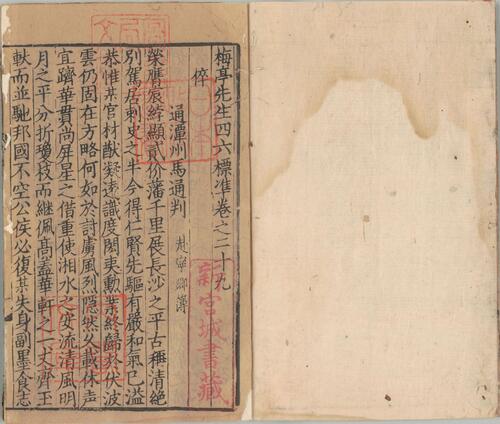 梅亭先生四六標準卷之二十九
倅
通潭州馬通判 赴寧鄉簿
榮膺宸綍顯貳价藩千里展長沙之平古稱清絶
別駕居刺史之半今得仁賢先驅有嚴和氣已溢
恭惟某官材猷凝遠識度閎夷勳業終歸於伏波
雲仍固在方略何如於討虜風烈隱然久載休聲
宜躋華貫尚屏星之借重使湘水之安流清風明
月之平分折瓊枝而繼佩髙蓋華軒之一丈齊玉
軑而並馳邦國不空公侯必復某失身副墨食志
新宮城書藏